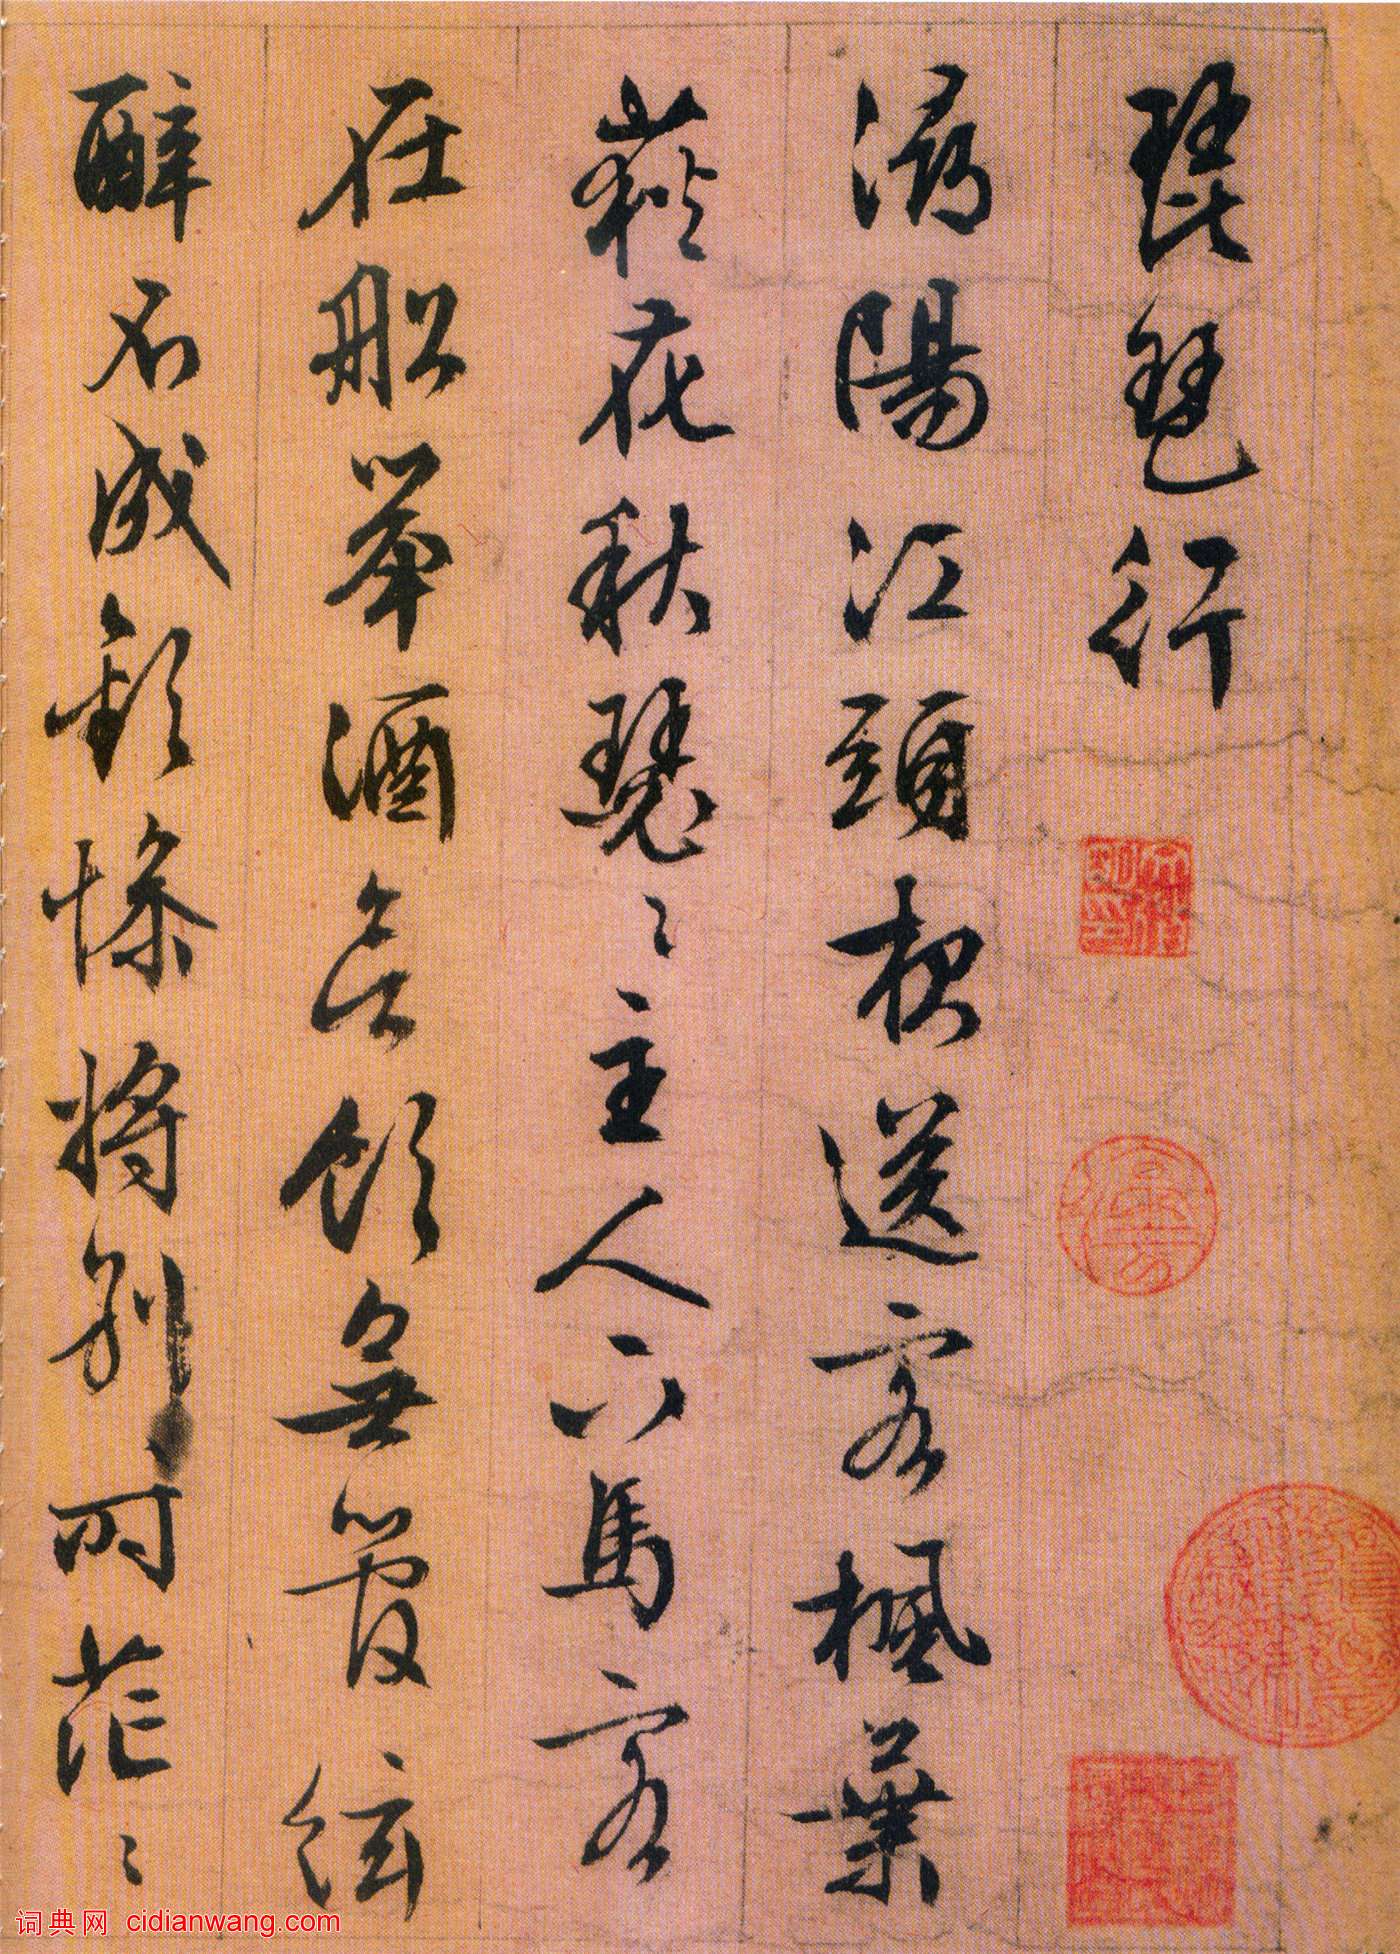 琵琶行
潯陽江頭夜送客楓葉
荻花秋瑟〻主人下馬客
在船舉酒欲飲無管絃
醉不成歡慘將別時茫〻
词典网 cidianwang.com